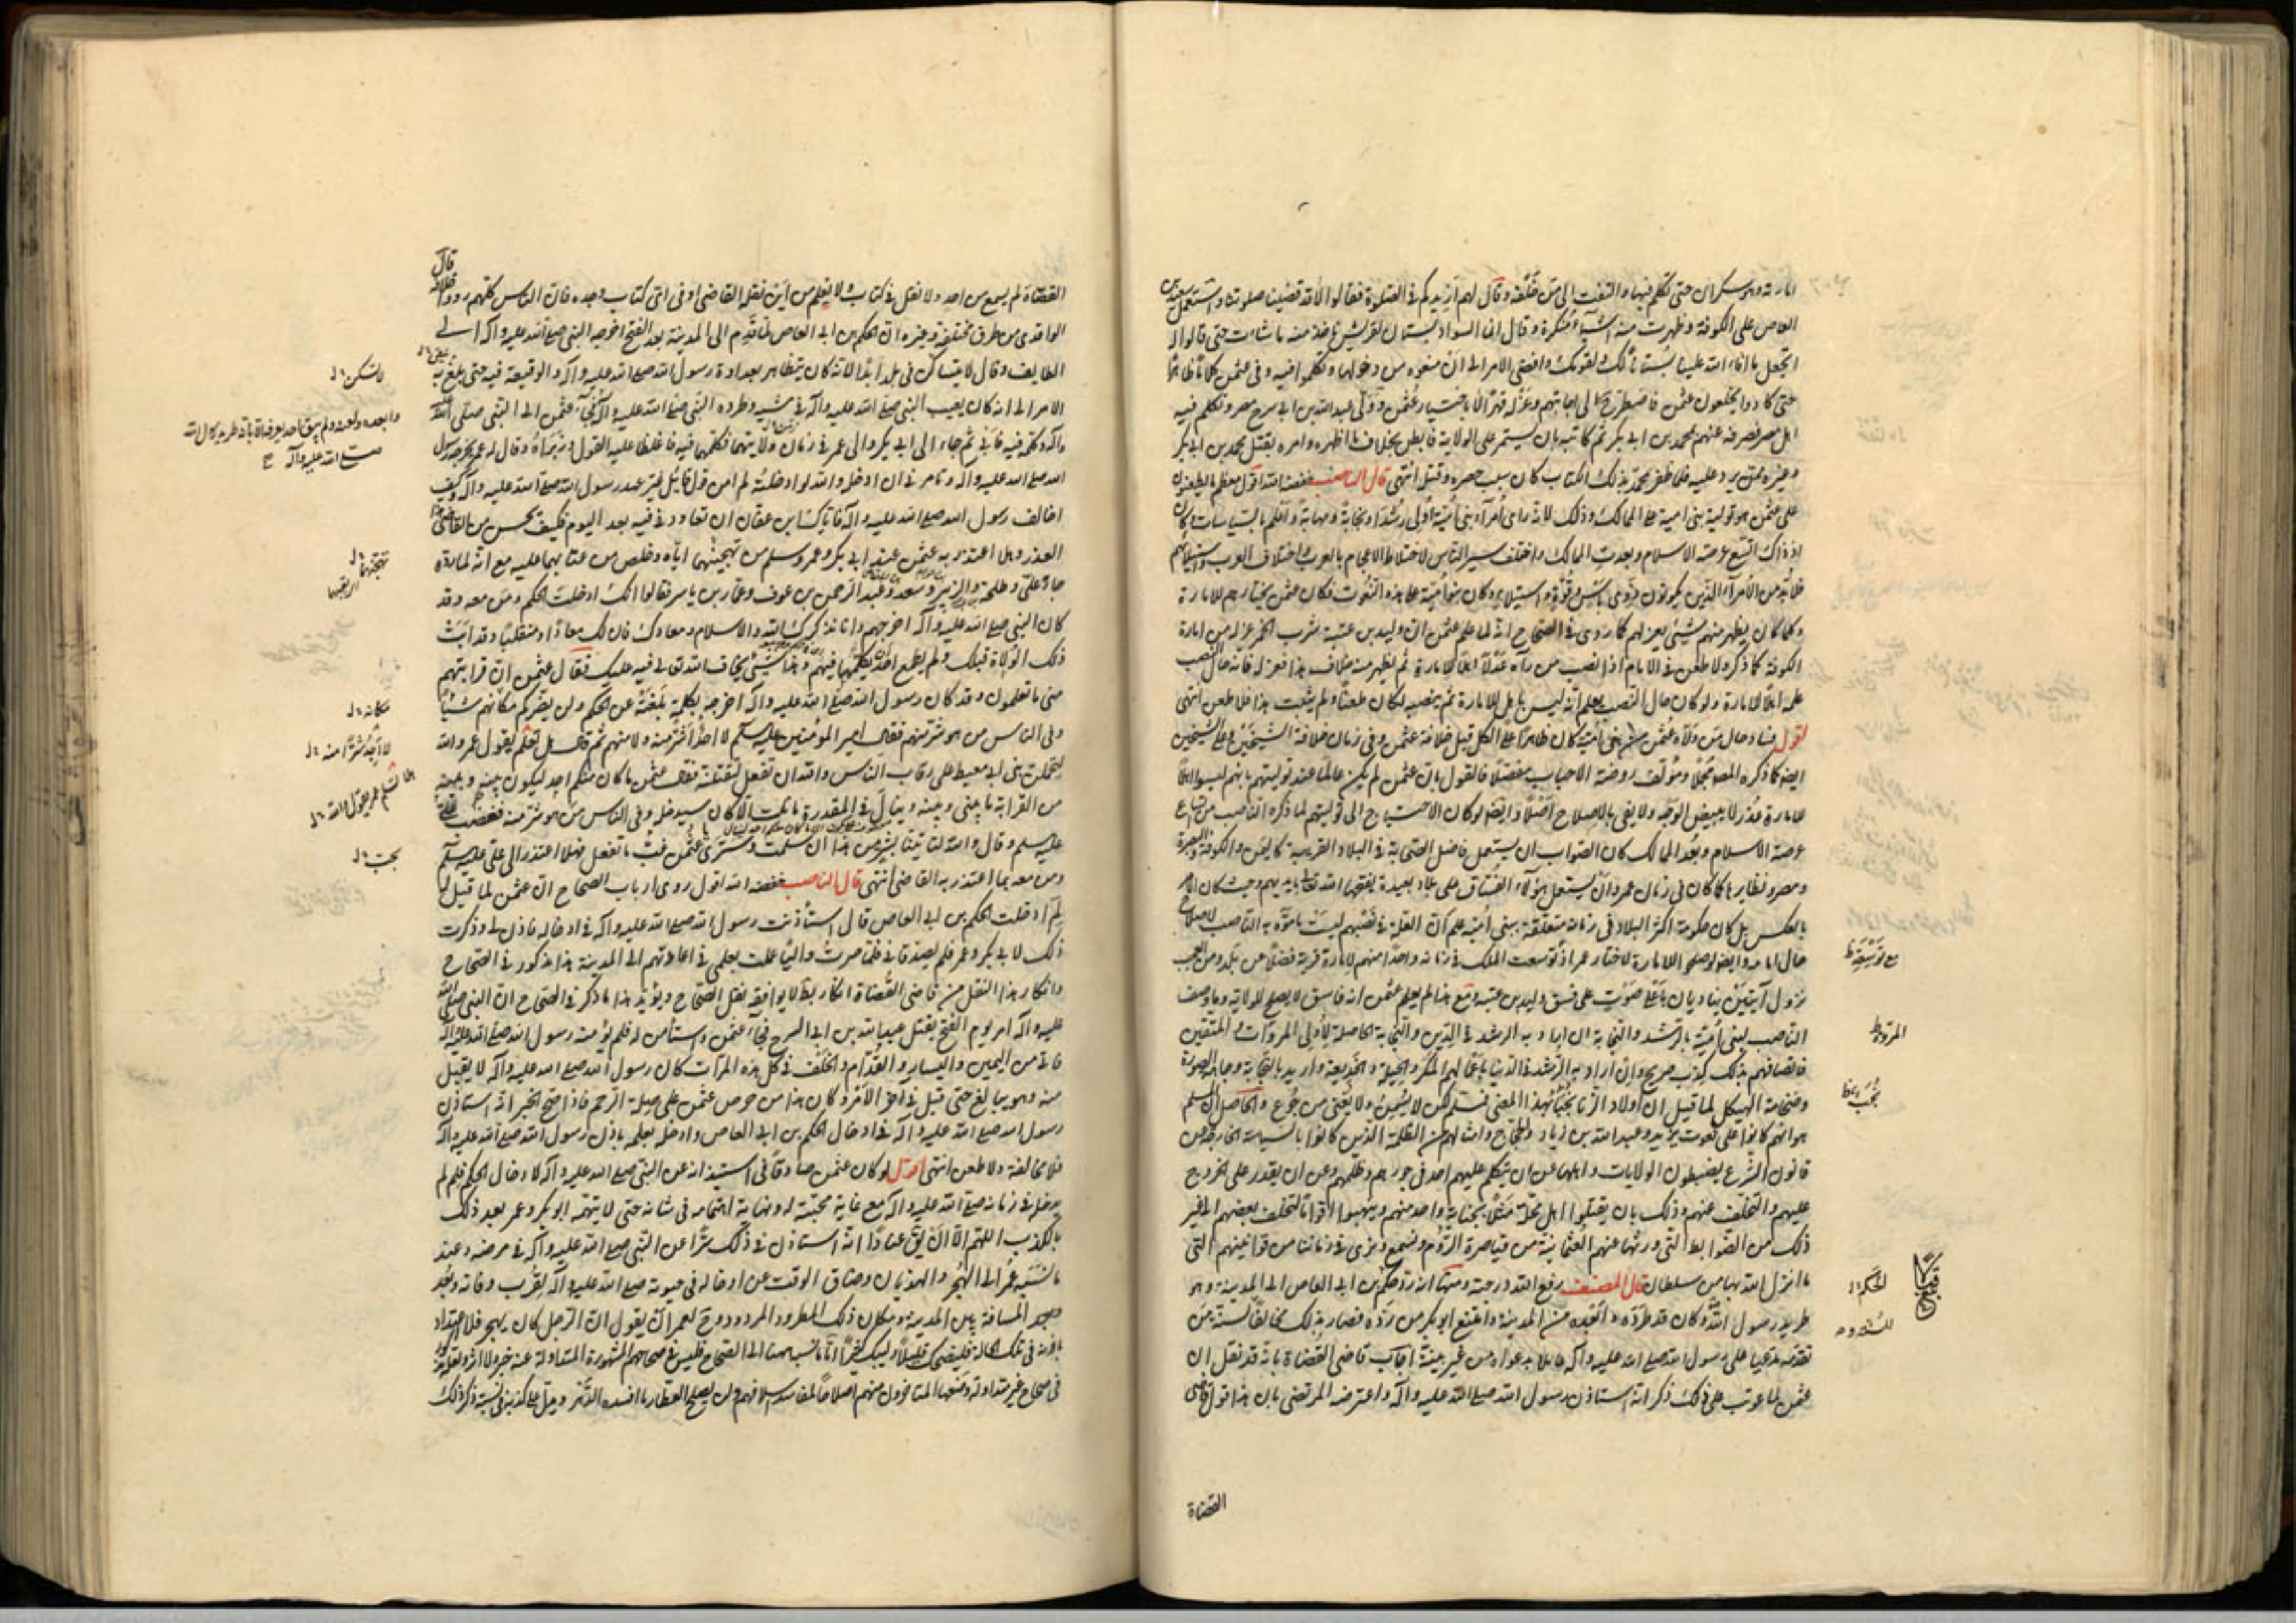 امارته وهو سكران حتى تكلم فيها والتفت الى من خلفه وقال لهم ازيدكم في الصلوة فقالوا لا قد قضينا صلوتنا واستعمل سعيد بن
العاص على الكوفة وظهرت منه اشياء منكرة وقال انما السواد بستان لقريش تاخذ منه ما شاءت حتى قالوا له
اتجعل ما افاء الله علينا بستانا لك ولقومك وافضى الامر الى ان منعوه من دخولها وتكلموا فيه وفي عثمن كلاما ظاهرا
حتى كادوا يخلعون عثمن فاضطر الى اجابتهم وعزله قهرا لا باختيار عثمن وولى عبد الله بن ابي سرح مصر وتكلم فيه
اهل مصر فصرفه عنهم بمحمد بن ابي بكر ثم كاتبه بان يستمر على الولاية فابطن بخلاف ما اظهره وامره بقتل محمد بن ابي بكر
وغيره ممن يرد عليه فلما ظفر محمد بذلك الكتاب كان سبب حصره وقتله انتهى قال الناصب خفضه الله اقول معظم ما يطعنون
على عثمن هو تولية بني امية على الممالك وذلك لانه راى امراء بني امية اولى رشد ونجابة ومهابة واعلم بالسياسات وكان
اذ ذاك اتسع عرصة الاسلام وبعدت الممالك واختلف سير الناس لاختلاط الاعجام بالعرب واختلاف العرب واستيلائهم
فلا بد من الامراء الذين يكونون ذوي باس وقوة واستيلاء وكان بنو امية على هذه النعوت فكان عثمن يختارهم للامارة
وكلما كان يظهر منهم شيء يعزلهم كما روى في الصحاح انه لما علم عثمن ان وليد بن عتبة شرب الخمر عزله من امارة
الكوفة كما ذكر ولا طعن في الامام اذا نصب من رآه عدلا اهلا للامارة ثم يظهر منه خلاف هذا فعزله فانه حال النصب
علمه اهلا للامارة ولو كان حال النصب يعلم انه ليس باهل للامارة ثم ينصبه لكان طعنا ولم يثبت هذا فلا طعن انتهى
اقول فساد حال من ولاه عثمن من بني امية كان ظاهرا على الكل قبل خلافة عثمن وفي زمان خلافة الشيخين وعلى الشيخين
ايضا كما ذكره المصنف مجملا ومؤلف روضة الاحباب مفصلا فالقول بان عثمن لم يكن عالما عند توليتهم بانهم ليسوا اهلا
للامارة عذر لا يبيض الوجه ولا يفي بالاصلاح اصلا وايضا لو كان الاحتياج الى توليتهم لما ذكره الناصب من اتساع
عرصة الاسلام وبعد الممالك كان الصواب ان يستعمل فاضل الصحابة في البلاد القريبة كاليمن والكوفة والبصرة
ومصر ونظايرها كما كان في زمان عمر وان يستعمل هؤلاء الفساق على بلاد بعيدة يفتحها الله تعالى بايديهم وحيث كان الامر
بالعكس بل كان حكومة اكثر البلاد في زمانه متعلقة ببني امية علم ان العلة في نصبهم ليست ما موه به الناصب لاصلاح
حال امامه وايضا لو صلحوا للامارة لاختار عمر اذ توسعت الملك في زمانه واحدا منهم لامارة قرية فضلا عن بلد ومن العجب
نزول آيتين يناديان باعلى صوت على فسق وليد بن عتبة ومع هذا لم يعلم عثمن انه فاسق لا يصلح للولاية وما وصف
الناصب لبني امية بالرشد والنجابة ان اراد به الرشد في الدين والنجابة الحاصلة لاولي المروات والمتقين
فاتصافهم بذلك كذب صريح وان اراد به الرشد في الدنيا باعمالهم المكر والحيلة والخديعة واريد بالنجابة وجاهة الصورة
وضخامة الهيكل لما قيل ان اولاد الزنا نجب بهذا المعنى فمسلم لكن لا يسمن ولا يغني من جوع والحاصل ان المسلم
هو انهم كانوا على نعوت يزيد وعبيد الله بن زياد والحجاج وامثالهم من الظلمة الذين كانوا بالسياسة الخارجة عن
قانون الشرع يضبطون الولايات واهلها عن ان يتكلم عليهم احد في جورهم وظلمهم وعن ان يقدر على الخروج
عليهم والتخلف عنهم وذلك بان يقتلوا اهل محلة مثلا بجناية واحد منهم وينهبوا اقواما لتخلف بعضهم الى غير
ذلك من الضوابط التي ورثها عنهم العثمانية من قياصرة الروم ونسمع ونرى في زماننا من قوانينهم التي
ما انزل الله بها من سلطان قال المصنف رفع الله درجته ومنها انه رد حكم بن ابي العاص الى المدينة وهو
طريد رسول الله وكان قد طرده وابعده من المدينة وامتنع ابو بكر من رده فصار بذلك مخالفا لسنة من
تقدمه مدعيا على رسول الله صلى الله عليه وآله عاملا بدعواه من غير بينة اجاب قاضي القضاة بانه قد نقل ان
عثمن لما عوتب على ذلك ذكر انه استاذن رسول الله صلى الله عليه وآله واعترضه المرتضى بان هذا قول قاضي
القضاة
القضاة لم يسمع من احد ولا نقل في كتاب ولا نعلم من اين نقله القاضي او في اي كتاب وجده فان الناس كلهم رووا خلافه قال
الواقدي من طرق مختلفة وغيره ان الحكم بن ابي العاص لما قدم الى المدينة بعد الفتح اخرجه النبي صلى الله عليه وآله الى
الطايف وقال لا يساكنني في بلد ابدا لانه كان يتظاهر بعداوة رسول الله صلى الله عليه وآله والوقيعة فيه حتى بلغ به
الامر الى انه كان يعيب النبي صلى الله عليه وآله في مشيه وطرده النبي صلى الله عليه وآله فجاء عثمن الى النبي صلى الله عليه
وآله وكلمه فيه فابى ثم جاء الى ابي بكر والى عمر في زمان ولايتهما فكلمهما فيه فاغلظا عليه القول وزبراه وقال له عمر يخرجه رسول
الله صلى الله عليه وآله وتامرني ان ادخله والله لو ادخلته لم آمن قول قايل غير عهد رسول الله صلى الله عليه وآله وكيف
اخالف رسول الله صلى الله عليه وآله فاياك يا ابن عفان ان تعاودني فيه بعد اليوم فكيف يحسن من القاضي هذا
العذر وهلا اعتذر به عثمن عند ابي بكر وعمر وسلم من تهجينهما اياه وخلص من عتابهما عليه مع انه لما رده
جاءه علي وطلحة والزبير وسعد وعبد الرحمن بن عوف وعمار بن ياسر فقالوا انك ادخلت الحكم ومن معه وقد
كان النبي صلى الله عليه وآله اخرجهم وانا نذكرك الله والاسلام ومعادك فان لك معادا ومنقلبا وقد ابت
ذلك الولاة قبلك ولم يطمع احد ان يكلمها فيهم وهذا شيء يخاف الله تعالى فيه عليك فقال عثمن ان قرابتهم
مني ما تعلمون وقد كان رسول الله صلى الله عليه وآله اخرجه بكلمة بلغته عن الحكم ولن يضركم مكانهم شيئا
وفي الناس من هو شر منهم فقال امير المؤمنين عليه السلم لا احد شر منه ولا منهم ثم قال هل تعلم يقول عمر والله
ليحملن بني ابي معيط على رقاب الناس والله ان تفعل ليقتلنه فقال عثمن ما كان منكم احد ليكون بينه وبينه
من القرابة ما بيني وبينه وينال في المقدرة ما نلت الا كان سيدخله وفي الناس من هو شر منه فغضب علي
عليه السلم وقال والله لتاتينا بشر من هذا ان سلمت وسترى يا عثمن غب ما تفعل فهلا اعتذر الى علي عليه السلم
ومن معه بما اعتذر به القاضي انتهى قال الناصب خفضه الله اقول روى ارباب الصحاح ان عثمن لما قيل له
لم ادخلت الحكم بن ابي العاص قال استأذنت رسول الله صلى الله عليه وآله في ادخاله فاذن لي وذكرت
ذلك لابي بكر وعمر فلم يصدقاني فلما صرت واليا عملت بعلمي في اعادتهم الى المدينة هذا مذكور في الصحاح
وانكار هذا النقل من قاضي القضاة انكار باطل لا يوافقه نقل الصحاح ويؤيد هذا ما ذكر في الصحاح ان النبي صلى الله
عليه وآله امر يوم الفتح بقتل عبد الله بن ابي السرح فجاء عثمن واستأمن له فلم يؤمنه رسول الله صلى الله عليه وآله
فاتى من اليمين واليسار والقدام والخلف في كل هذه المرات كان رسول الله صلى الله عليه وآله لا يقبل
منه وهو يبالغ حتى قبل في آخر الامر وكان هذا من حرص عثمن على صلة الرحم فاذا صح الخبر انه استاذن
رسول الله صلى الله عليه وآله في ادخال الحكم بن ابي العاص وادخله بعلمه باذن رسول الله صلى الله عليه وآله
فلا مخالفة ولا طعن انتهى اقول لو كان عثمن صادقا في استيذانه عن النبي صلى الله عليه وآله لادخال الحكم فلم لم
يدخله في زمانه صلى الله عليه وآله مع غاية محبته له ونهاية اهتمامه في شانه حتى لا يتهمه ابو بكر وعمر بعد ذلك
بالكذب اللهم الا ان يق عنادا انه استاذن في ذلك سرا عن النبي صلى الله عليه وآله في مرضه وعند
ما نسبه عمر الى الهجر والهذيان وضاق الوقت عن ادخاله في حيوته صلى الله عليه وآله لقرب وفاته وبعد
المسافة بين المدينة ومكان ذلك المطرود المردود وح لعمر ان يقول ان الرجل كان يهجر فلا اعتداد
باذنه في تلك الحالة فليضحك قليلا وليبك كثيرا واما ما نسبه الى الصحاح فليس في صحاحهم المشهورة المتداولة عنه خبر ولا اثر ولعله مذكور
في صحاح غير متداولة وضعها المتاخرون منهم اصلاحا لمفاسد اسلافهم ولن يصلح العطار ما افسده الدهر